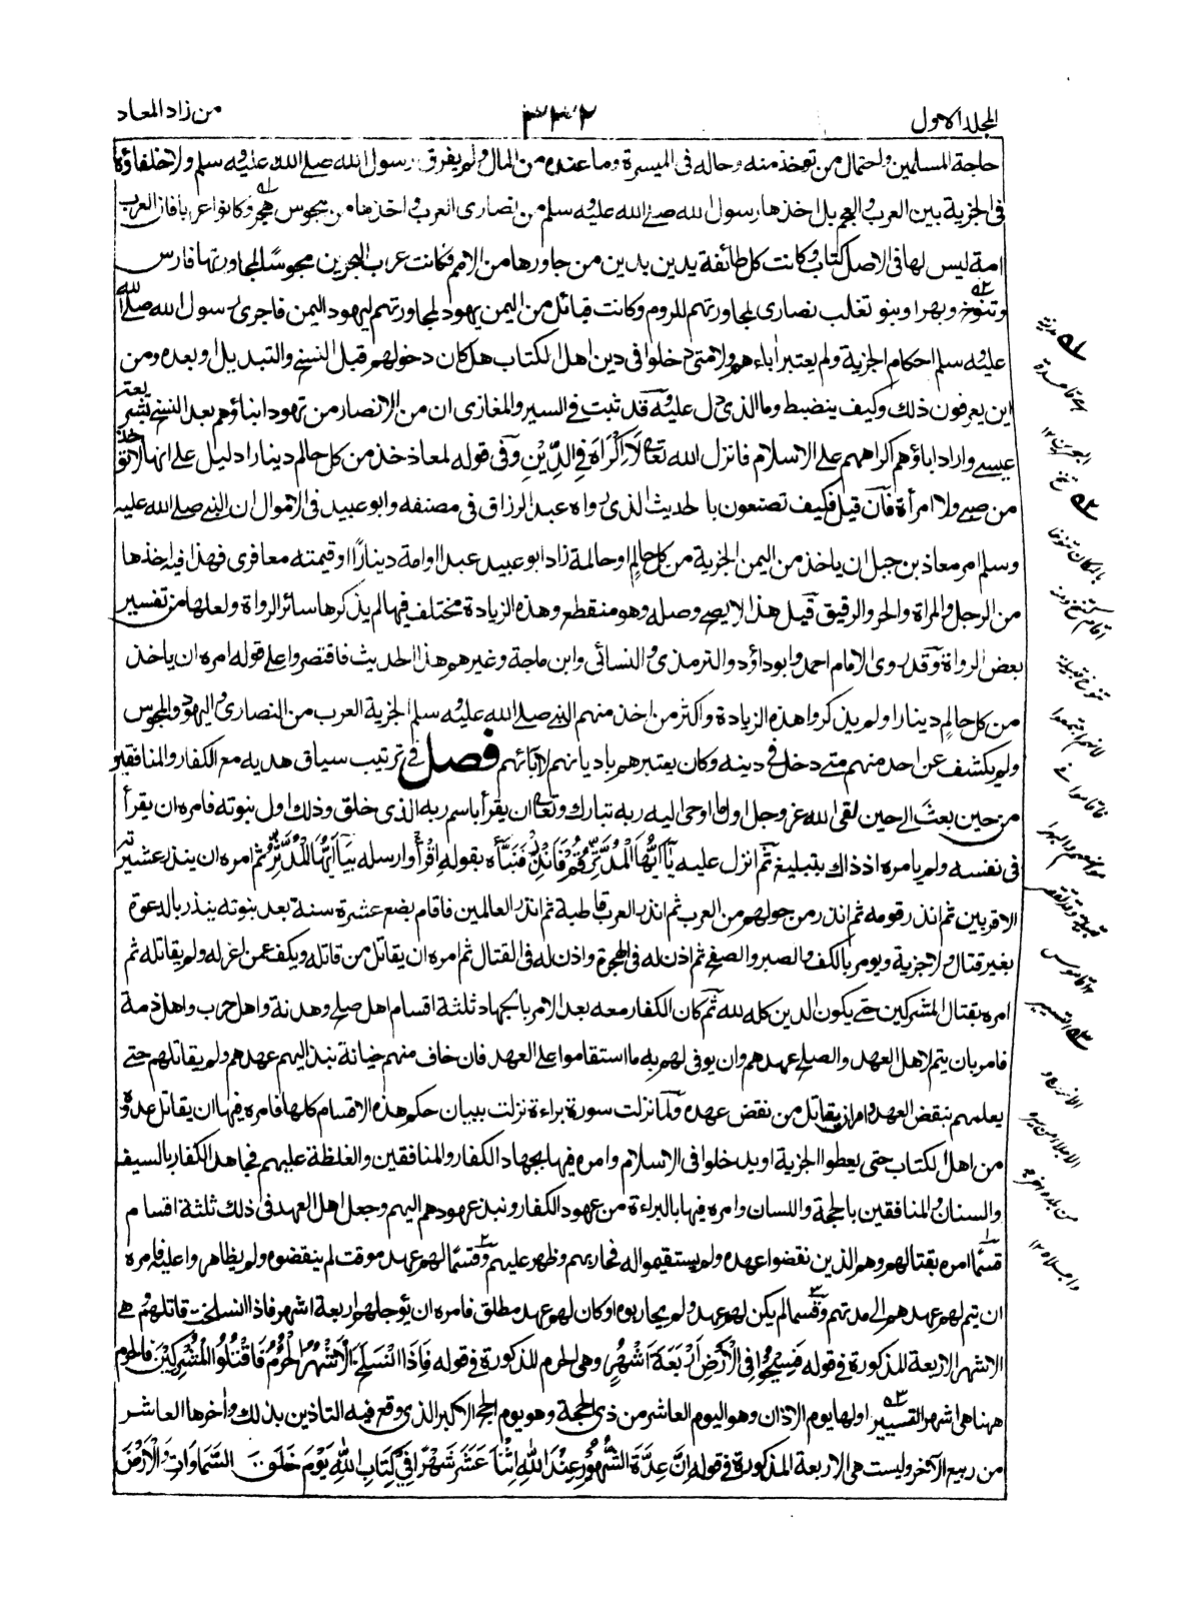 المجلد الاول
٣٣٢
من زاد المعاد
حاجة المسلمين واحتمال من توخذ منه وحاله فى الميسرة وما عنده من المال ولم يفرق رسول الله صلى الله عليه وسلم ولا خلفاؤه
فى الجزية بين العرب والعجم بل اخذها رسول الله صلى الله عليه وسلم من نصارى العرب واخذها من مجوس هجر وكانوا عربا فان العرب
امة ليس لها فى الاصل كتاب وكانت كل طائفة يدين بدين من جاورها من الامم فكانت عرب البحرين مجوسًا لمجاورتها فارس
وتنوخ وبهرا وبنو تغلب نصارى لمجاورتهم للروم وكانت قبائل من اليمن يهود لمجاورتهم ليهود اليمن فاجرى رسول الله صلى الله
عليه وسلم احكام الجزية ولم يعتبر اباءهم ولا متى دخلوا فى دين اهل الكتاب هل كان دخولهم قبل النسخ والتبديل او بعده ومن
اين يعرفون ذلك وكيف ينضبط وما الذى دل عليه وقد ثبت فى السير والمغازى ان من الانصار من تهود ابناؤهم بعد النسخ بشريعة
عيسى واراد اباؤهم اكراههم على الاسلام فانزل الله تعالى لَا اِكْرَاهَ فِي الدِّيْنِ وفى قوله لمعاذ خذ من كل حالم دينارا دليل على انها لا تؤخذ
من صبى ولا امرأة فان قيل فكيف تصنعون بالحديث الذى رواه عبد الرزاق فى مصنفه وابو عبيد فى الاموال ان النبى صلى الله عليه
وسلم امر معاذ بن جبل ان ياخذ من اليمن الجزية من كل حالم او حالمة زاد ابو عبيد عبدا او امة دينارًا او قيمته معافرى فهذا فيه اخذها
من الرجل والمراة والحر والرقيق قيل هذا لا يصح وصله وهو منقطع وهذه الزيادة مختلف فيها لم يذكرها سائر الرواة ولعلها من تفسير
بعض الرواة وقد روى الامام احمد وابو داؤد والترمذى والنسائى وابن ماجة وغيرهم هذا الحديث فاقتصروا على قوله امره ان ياخذ
من كل حالم دينارا ولم يذكروا هذه الزيادة واكثر من اخذ منهم النبى صلى الله عليه وسلم الجزية العرب من النصارى واليهود والمجوس
ولم يكشف عن احد منهم متى دخل فى دينه وكان يعتبرهم باديانهم لا بآبائهم فصل فى ترتيب سياق هديه مع الكفار والمنافقين
من حين بعث الى حين لقى الله عز وجل اول ما اوحى اليه ربه تبارك وتعالى ان يقرأ باسم ربه الذى خلق وذلك اول نبوته فامره ان يقرأ
فى نفسه ولم يامره اذ ذاك بتبليغ ثم انزل عليه يَآ اَيُّهَا الْمُدَّثِّرُ قُمْ فَاَنْذِرْ فنبأه بقوله اِقْرَأْ وارسله بيَآ اَيُّهَا الْمُدَّثِّرُ ثم امره ان ينذر عشيرته
الاقربين ثم انذر قومه ثم انذر من حولهم من العرب ثم انذر العرب قاطبة ثم انذر العالمين فاقام بضع عشرة سنة بعد نبوته ينذر بالدعوة
بغير قتال ولا جزية ويومر بالكف والصبر والصفح ثم اذن له فى الهجرة واذن له فى القتال ثم امره ان يقاتل من قاتله ويكف عمن اعزله ولم يقاتله ثم
امره بقتال المشركين حتى يكون الدين كله لله ثم كان الكفار معه بعد الامر بالجهاد ثلثة اقسام اهل صلح وهدنة واهل حرب واهل ذمة
فامر بان يتم لاهل العهد والصلح عهدهم وان يوفى لهم به ما استقاموا على العهد فان خاف منهم خيانة نبذ اليهم عهدهم ولم يقاتلهم حتى
يعلمهم بنقض العهد وامر ان يقاتل من نقض عهده ولما نزلت سورة براءة نزلت ببيان حكم هذه الاقسام كلها فامره فيها ان يقاتل عدوه
من اهل الكتاب حتى يعطوا الجزية او يدخلوا فى الاسلام وامره فيها بجهاد الكفار والمنافقين والغلظة عليهم فجاهد الكفار بالسيف
والسنان والمنافقين بالحجة واللسان وامره فيها بالبراءة من عهود الكفار ونبذ عهودهم اليهم وجعل اهل العهد فى ذلك ثلثة اقسام
قسمًا امره بقتالهم وهم الذين نقضوا عهده ولم يستقيموا له فحاربهم وظهر عليهم وقسمًا لهم عهد موقت لم ينقضوه ولم يظاهروا عليه فامره
ان يتم لهم عهدهم الى مدتهم وقسما لم يكن لهم عهد ولم يحاربوه او كان لهم عهد مطلق فامره ان يؤجلهم اربعة اشهر فاذا انسلخت قاتلهم وهى
الاشهر الاربعة المذكورة فى قوله فَسِيْحُوْا فِي الْاَرْضِ اَرْبَعَةَ اَشْهُرٍ وهى الحرم المذكورة فى قوله فَاِذَا انْسَلَخَ الْاَشْهُرُ الْحُرُمُ فَاقْتُلُوا الْمُشْرِكِيْنَ فالحرم
ههنا هى اشهر التسيير اولها يوم الاذان وهو اليوم العاشر من ذى الحجة وهو يوم الحج الاكبر الذى وقع فيه التاذين بذلك واٰخرها العاشر
من ربيع الآخر وليست هى الاربعة المذكورة فى قوله اِنَّ عِدَّةَ الشُّهُوْرِ عِنْدَ اللّٰهِ اثْنَا عَشَرَ شَهْرًا فِيْ كِتَابِ اللّٰهِ يَوْمَ خَلَقَ السَّمٰوَاتِ وَالْاَرْضَ